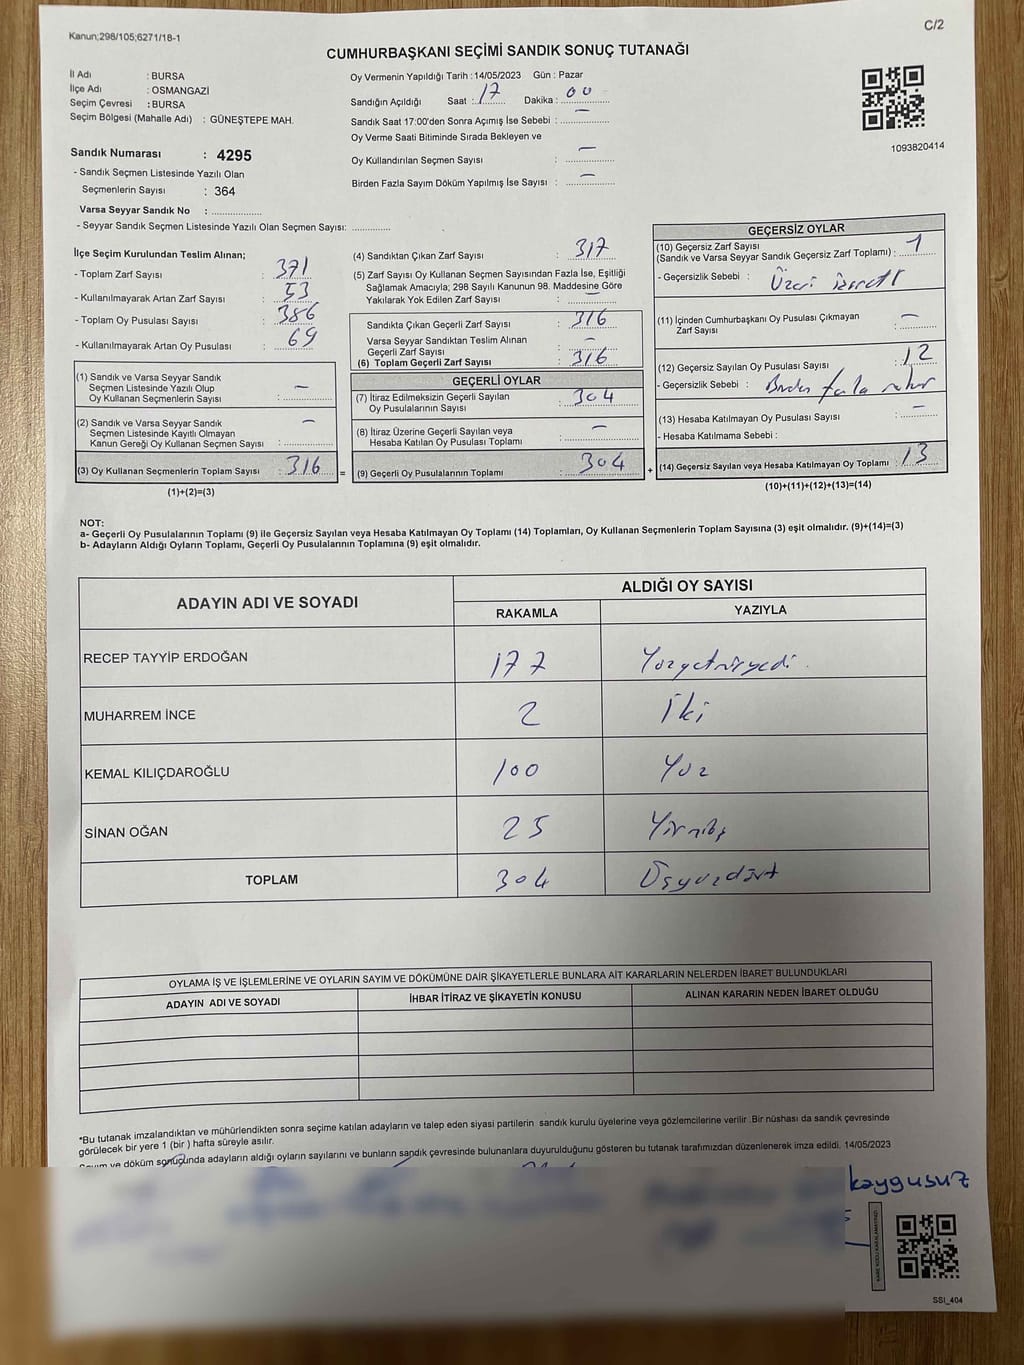 Kanun;298/105;6271/18-1
C/2
CUMHURBAŞKANI SEÇİMİ SANDIK SONUÇ TUTANAĞI
İl Adı : BURSA
İlçe Adı : OSMANGAZİ
Seçim Çevresi : BURSA
Seçim Bölgesi (Mahalle Adı) : GÜNEŞTEPE MAH.
Sandık Numarası : 4295
- Sandık Seçmen Listesinde Yazılı Olan
Seçmenlerin Sayısı : 364
Varsa Seyyar Sandık No : ..................
- Seyyar Sandık Seçmen Listesinde Yazılı Olan Seçmen Sayısı: ..............
Oy Vermenin Yapıldığı Tarih : 14/05/2023 Gün : Pazar
Sandığın Açıldığı Saat : 17 Dakika : 00
Sandık Saat 17:00'den Sonra Açımış İse Sebebi : —
Oy Verme Saati Bitiminde Sırada Bekleyen ve
Oy Kullandırılan Seçmen Sayısı : —
Birden Fazla Sayım Döküm Yapılmış İse Sayısı : —
1093820414
İlçe Seçim Kurulundan Teslim Alınan;
- Toplam Zarf Sayısı : 371
- Kullanılmayarak Artan Zarf Sayısı : 53
- Toplam Oy Pusulası Sayısı : 386
- Kullanılmayarak Artan Oy Pusulası : 69
(1) Sandık ve Varsa Seyyar Sandık
Seçmen Listesinde Yazılı Olup
Oy Kullanan Seçmenlerin Sayısı : —
(2) Sandık ve Varsa Seyyar Sandık
Seçmen Listesinde Kayıtlı Olmayan
Kanun Gereği Oy Kullanan Seçmen Sayısı : —
(3) Oy Kullanan Seçmenlerin Toplam Sayısı : 316
(1)+(2)=(3)
=
(4) Sandıktan Çıkan Zarf Sayısı : 317
(5) Zarf Sayısı Oy Kullanan Seçmen Sayısından Fazla İse, Eşitliği
Sağlamak Amacıyla; 298 Sayılı Kanunun 98. Maddesine Göre
Yakılarak Yok Edilen Zarf Sayısı : —
Sandıkta Çıkan Geçerli Zarf Sayısı : 316
Varsa Seyyar Sandıktan Teslim Alınan
Geçerli Zarf Sayısı : —
(6) Toplam Geçerli Zarf Sayısı : 316
GEÇERLİ OYLAR
(7) İtiraz Edilmeksizin Geçerli Sayılan
Oy Pusulalarının Sayısı : 304
(8) İtiraz Üzerine Geçerli Sayılan veya
Hesaba Katılan Oy Pusulası Toplamı : —
(9) Geçerli Oy Pusulalarının Toplamı : 304
+
GEÇERSİZ OYLAR
(10) Geçersiz Zarf Sayısı
(Sandık ve Varsa Seyyar Sandık Geçersiz Zarf Toplamı) : 1
- Geçersizlik Sebebi : Üzeri işaretli
(11) İçinden Cumhurbaşkanı Oy Pusulası Çıkmayan
Zarf Sayısı : —
(12) Geçersiz Sayılan Oy Pusulası Sayısı : 12
- Geçersizlik Sebebi : Birden fazla mühür
(13) Hesaba Katılmayan Oy Pusulası Sayısı : —
- Hesaba Katılmama Sebebi :
(14) Geçersiz Sayılan veya Hesaba Katılmayan Oy Toplamı : 13
(10)+(11)+(12)+(13)=(14)
NOT:
a- Geçerli Oy Pusulalarının Toplamı (9) ile Geçersiz Sayılan veya Hesaba Katılmayan Oy Toplamı (14) Toplamları, Oy Kullanan Seçmenlerin Toplam Sayısına (3) eşit olmalıdır. (9)+(14)=(3)
b- Adayların Aldığı Oyların Toplamı, Geçerli Oy Pusulalarının Toplamına (9) eşit olmalıdır.
ADAYIN ADI VE SOYADI
ALDIĞI OY SAYISI
RAKAMLA YAZIYLA
RECEP TAYYİP ERDOĞAN 177 Yüzyetmişyedi
MUHARREM İNCE 2 İki
KEMAL KILIÇDAROĞLU 100 Yüz
SİNAN OĞAN 25 Yirmibeş
TOPLAM 304 Üçyüzdört
OYLAMA İŞ VE İŞLEMLERİNE VE OYLARIN SAYIM VE DÖKÜMÜNE DAİR ŞİKAYETLERLE BUNLARA AİT KARARLARIN NELERDEN İBARET BULUNDUKLARI
ADAYIN ADI VE SOYADI İHBAR İTİRAZ VE ŞİKAYETİN KONUSU ALINAN KARARIN NEDEN İBARET OLDUĞU
*Bu tutanak imzalandıktan ve mühürlendikten sonra seçime katılan adayların ve talep eden siyasi partilerin sandık kurulu üyelerine veya gözlemcilerine verilir .Bir nüshası da sandık çevresinde
görülecek bir yere 1 (bir ) hafta süreyle asılır.
Sayım ve döküm sonucunda adayların aldığı oyların sayılarını ve bunların sandık çevresinde bulunanlara duyurulduğunu gösteren bu tutanak tarafımızdan düzenlenerek imza edildi. 14/05/2023
kaygusuz
KARE KODU KARALAMAYINIZ
SSI_404